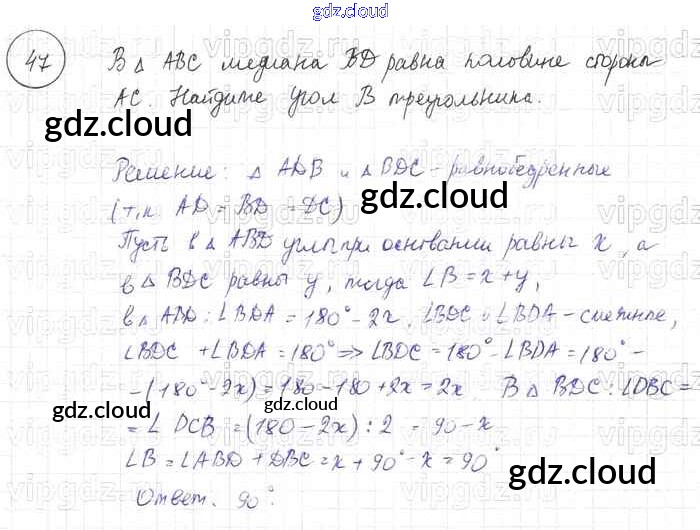 gdz.cloud
47 В △ ABC медиана BD равна половине стороны
AC. Найдите угол B треугольника.
gdz.cloud
gdz.cloud
Решение: △ ADB и △ BDC - равнобедренные
(т.к. AD = BD = DC)
gdz.cloud
Пусть в △ ABD углы при основании равны x, а
в △ BDC равны y, тогда ∠B = x + y,
в △ ABD: ∠BDA = 180° - 2x, ∠BDC и ∠BDA - смежные,
∠BDC + ∠BDA = 180° => ∠BDC = 180° - ∠BDA = 180° -
- (180° - 2x) = 180 - 180 + 2x = 2x. В △ BDC: ∠DBC =
gdz.cloud
gdz.cloud
= ∠ DCB = (180 - 2x) : 2 = 90 - x
∠B = ∠ABD + DBC = x + 90° - x = 90°
gdz.cloud
Ответ. 90°.
gdz.cloud
gdz.cloud